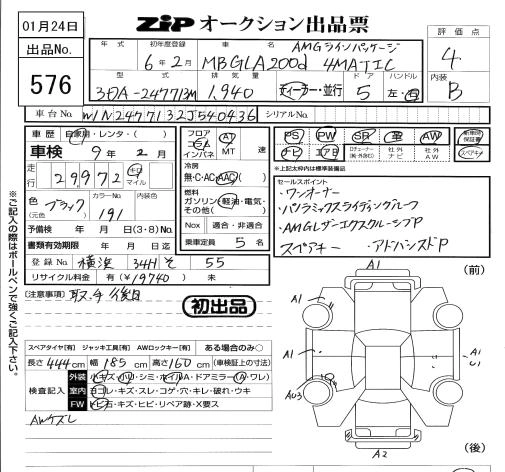 01月24日
ZiP オークション出品票
出品No.
576
年式 初年度登録 車名
6年2月 MB GLA200d 4MATIC AMGラインパッケージ
型式 排気量 ドア ハンドル
3DA-247713M 1,940 ディーラー・並行 5 左・右
評価点
4
内装
B
車台No. W1N2477132J540436 シリアルNo.
車歴 自家用・レンタ・( )
車検 9年2月
走行 29,972 キロ マイル
色 (元色) ブラック カラーNo. 191
予備検 年 月 日(3・8)No.
書類有効期限 年 月 日迄
登録No. 横浜 34H そ 55
リサイクル料金 有(¥19740) 未
フロア コラム インパネ AT MT 速
冷房 無・C・AC・AAC( )
燃料 ガソリン・軽油・電気・その他( )
Nox 適合・非適合
乗車定員 5 名
PS PW SR 革 AW 新車時保証書
ナビ エアB 社外ナビ 社外AW スペアキー
*上記太枠内は標準装備品
セールスポイント
・ワンオーナー
・パノラミックスライディングルーフ
・AMGレザーエクスクルーシブP
スペアキー ・アドバンスドP
[注意事項] 取、手 後日
初出品
スペアタイヤ[有] ジャッキ工具[有] AWロックキー[有] ある場合のみ○
長さ 444cm 幅 185cm 高さ 160cm (車検証上の寸法)
検査記入
外装 キズ・凹・シミ・ホイルA・ドアミラー(A・ワレ)
室内 ヨゴレ・キズ・スレ・コゲ・穴・キレ・破れ・ウキ
FW トビ石・キズ・ヒビ・リペア跡・X要ス
AWケズレ
※ご記入の際はボールペンで強くご記入下さい。
A1 (前)
A1
A1 A1
AU3
A2 (後)